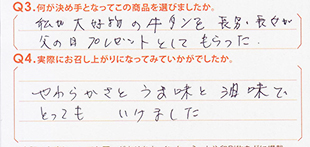 Q3.何が決め手となってこの商品を選びましたか。
私が大好物の牛タンを長男・長女が
父の日プレゼントとしてもらった.
Q4.実際にお召し上がりになってみていかがでしたか。
やわらかさとうま味と油味で、
とっても いけました